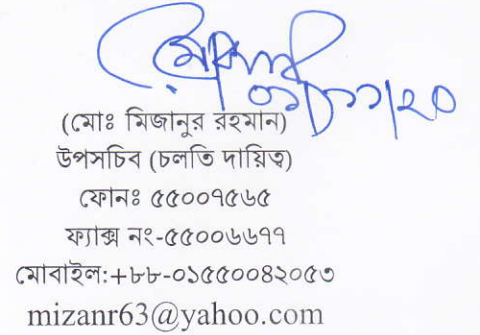 ০১/১১/২০
(মোঃ মিজানুর রহমান)
উপসচিব (চলতি দায়িত্ব)
ফোনঃ ৫৫০০৭৫৬৫
ফ্যাক্স নং-৫৫০০৬৬৭৭
মোবাইল:+৮৮-০১৫৫০০৪২০৫৩
mizanr63@yahoo.com